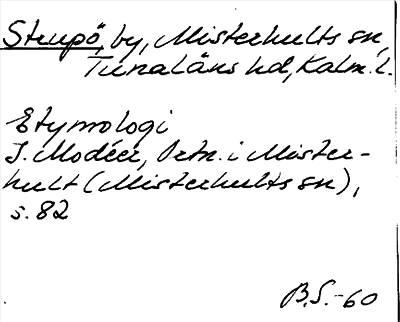 Strupö, by, Misterhults sn,
Tunaläns hd, Kalm. l.
Etymologi
I. Modéer, Ortn. i Mister-
hult (Misterhults sn),
s. 82
B.S. -60